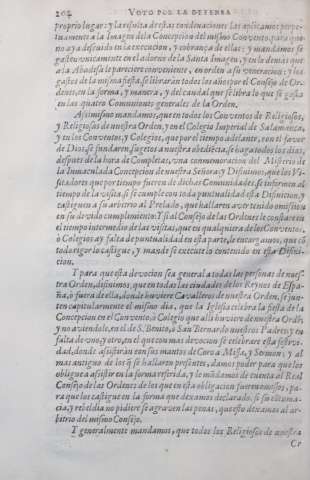 202 VOTO POR LA DEFENSA
proprio lugar: y la resulta destas condenaciones las aplicamos perpe-
tuamente a la Imagen de la Concepcion del mismo Convento, para que
no aya descuido en la execucion, y cobrança de ellas: y mandamos se
gasten vnicamente en el adorno de la Santa Imagen, y en lo demàs que
a la Abadesa le pareciere conveniente, en orden a su veneracion: y los
gastos de la misma fiesta, se librarán todos los años por el Consejo de Or-
denes, en la forma, y manera, y del caudal que se libra lo que se gasta
en las quatro Comuniones generales de la Orden.
Assimismo mandamos, que en todos los Conventos de Religiosos,
y Religiosas de nuestra Orden, y en el Colegio Imperial de Salamanca,
y en los Conventos, y Colegios, que por el tiempo adelante, con el favor
de Dios se fundaren, sugetos a nuestra obediēcia, se haga todos los dias,
despues de la hora de Completas, vna conmemoracion del Misterio de
la Inmaculada Concepcion de nuestra Señora: y Difinimos, que los Vi-
sitadores que por tiempo fueren de dichas Comunidades, se informen al
tiempo de la visita, si se cumple con toda puntualidad esta Difinicion, y
castiguen a su arbitrio al Prelado, que hallaren aver tenido omission
en su devido cumplimiento: Y si al Consejo de las Ordenes le constare en
el tiempo intermedio de las visitas, que en qualquiera de los Conventos,
ò Colegios ay falta de puntualidad en esta parte, le encargamos, que cō
todo rigor lo castigue, y mande se execute lo contenido en esta Difini-
cion.
Y para que esta devocion sea general a todas las personas de nues-
tra Orden, difinimos, que en todas las ciudades de los Reynos de Espa-
ña, ò fuera de ella, donde huviere Cavalleros de nuestra Orden, se jun-
ten capitularmente el mismo dia, que la Iglesia celebra la fiesta de la
Concepcion en el Convento, ò Colegio que alli huviere de nuestra Ordē;
y no aviendole, en el de S. Benito, ò San Bernardo nuestros Padres; y en
falta de vno, y otro, en el que con mas devocion se celebrare esta festivi-
dad, donde assistiràn con sus mantos de Coro a Missa, y Sermon; y al
mas antiguo de los que se hallaren presentes, damos poder para que los
obligue a assistir en la forma referida, y le mādamos de cuenta al Real
Consejo de las Ordenes de los que en esta obligacion fueren omissos, pa-
ra que los castigue en la forma que dexamos declarado. si su contuma-
cia, y rebeldia no pidiere se agraven las penas, que esto dexamos al ar-
bitrio del mismo Consejo.
Y generalmente mandamos, que todos los Religiosos de nuestra
Or